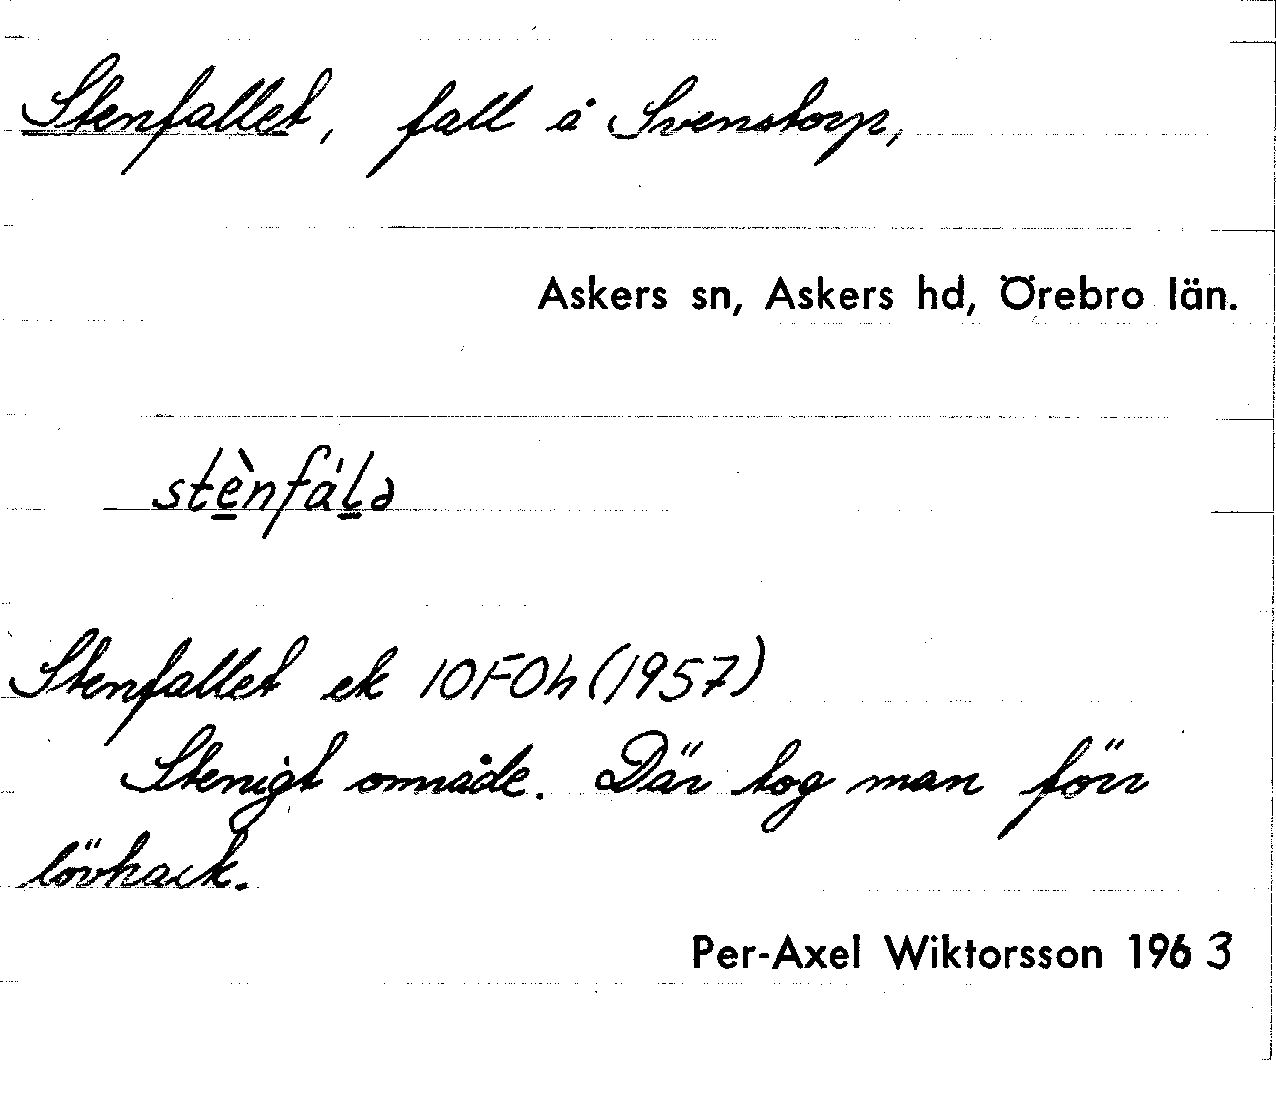 Stenfallet, fall å Svenstorp,
Askers sn, Askers hd, Örebro län.
stènfáḷə
Stenfallet ek 10F0h (1957)
Stenigt område. Där tog man förr
lövhack.
Per-Axel Wiktorsson 1963